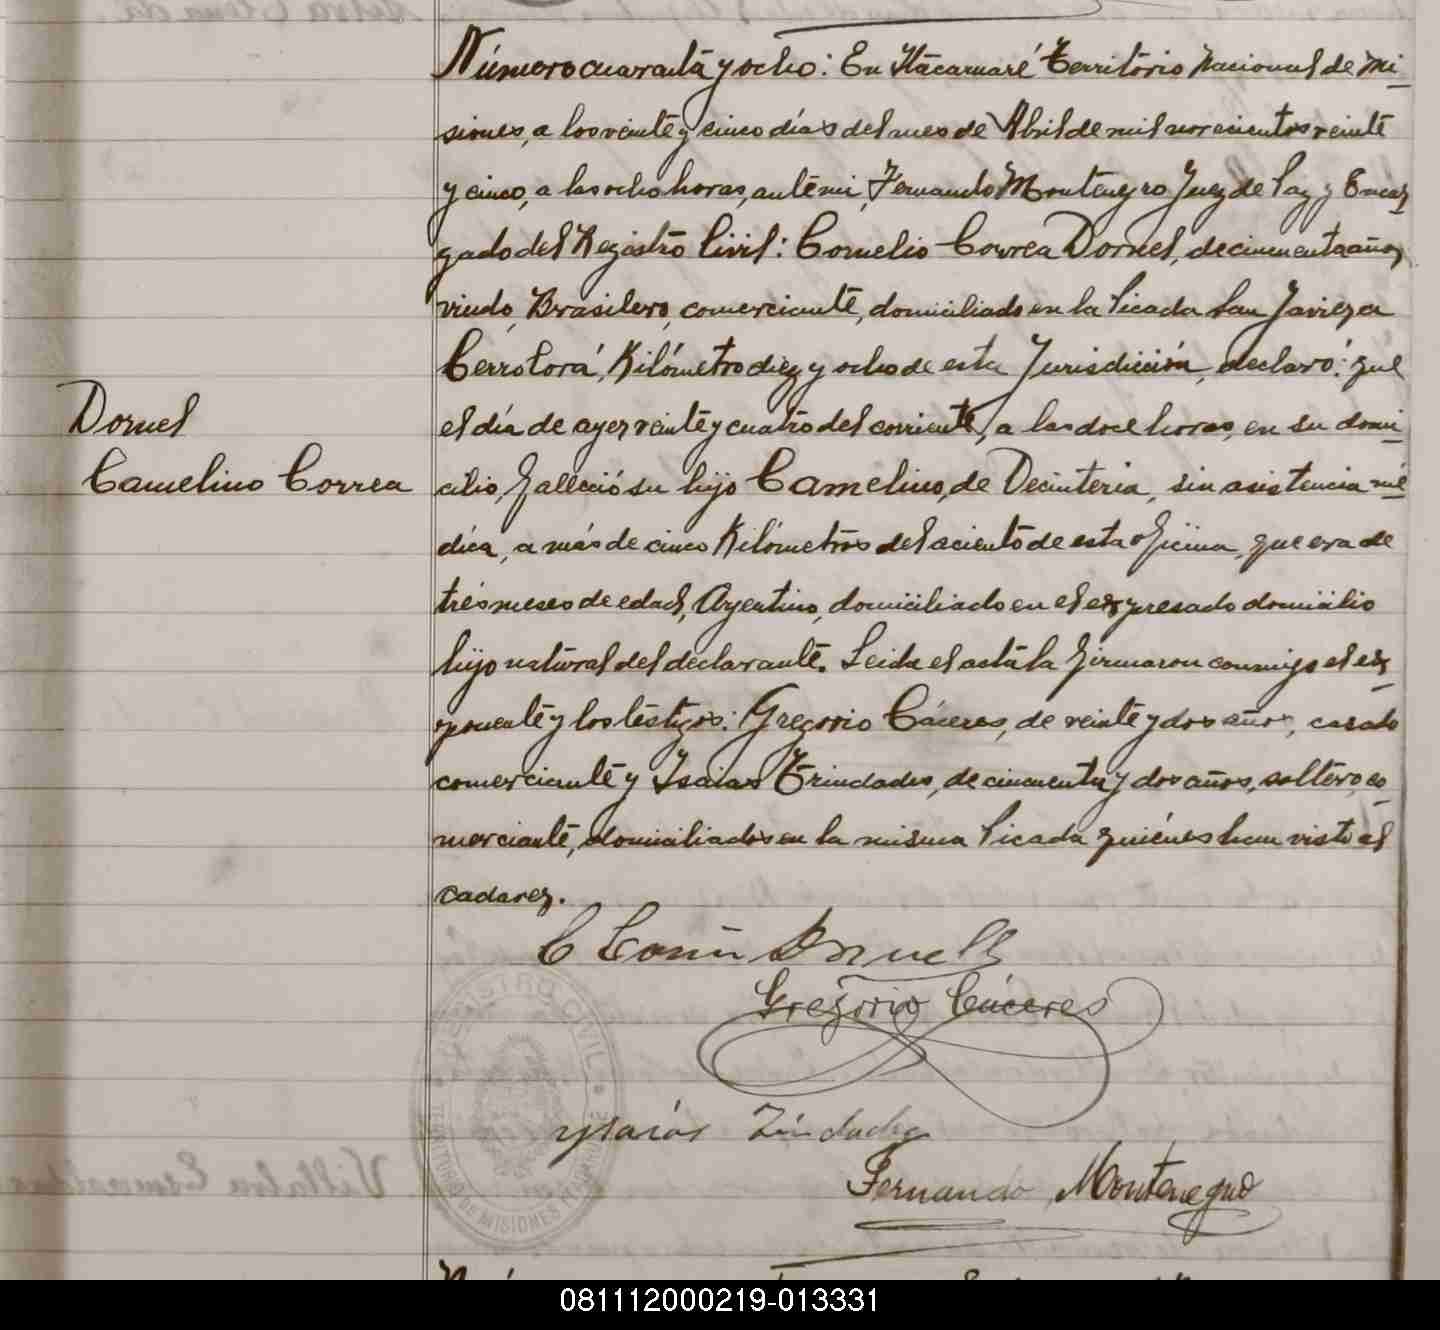 Número cuarenta y ocho: En Itacaruaré Territorio Nacional de Mi-
siones, a los veinte y cinco días del mes de Abril de mil novecientos veinte
y cinco, a las ocho horas, ante mi, Fernando Montenegro Juez de Paz y Encar-
gado del Registro Civil: Cornelio Correa Dornel, de cincuenta años,
viudo, Brasilero, comerciante, domiciliado en la Picada San Javier a
Cerro Corá, Kilómetro diez y ocho de esta Jurisdicción, declaró: que
el día de ayer veinte y cuatro del corriente, a las doce horas, en su domi-
Dornel
Camelino Correa
cilio, falleció su hijo Camelino, de Decinteria, sin asistencia mé-
dica, a más de cinco Kilómetros del aciento de esta oficina, que era de
tres meses de edad, Argentino, domiciliado en el expresado domicilio
hijo natural del declarante. Leida el acta la firmaron conmigo el ex-
ponente y los testigos: Gregorio Cáceres, de veinte y dos años, casado
comerciante y Isaias Trindades, de cincuenta y dos años, soltero, co-
merciante, domiciliados en la misma Picada quiénes han visto el
cadaver.
C Correa Dornell
Gregorio Cáceres
REGISTRO CIVIL
TERRITORIO DE MISIONES
Ysaias
Fernando Montenegro
081112000219-013331